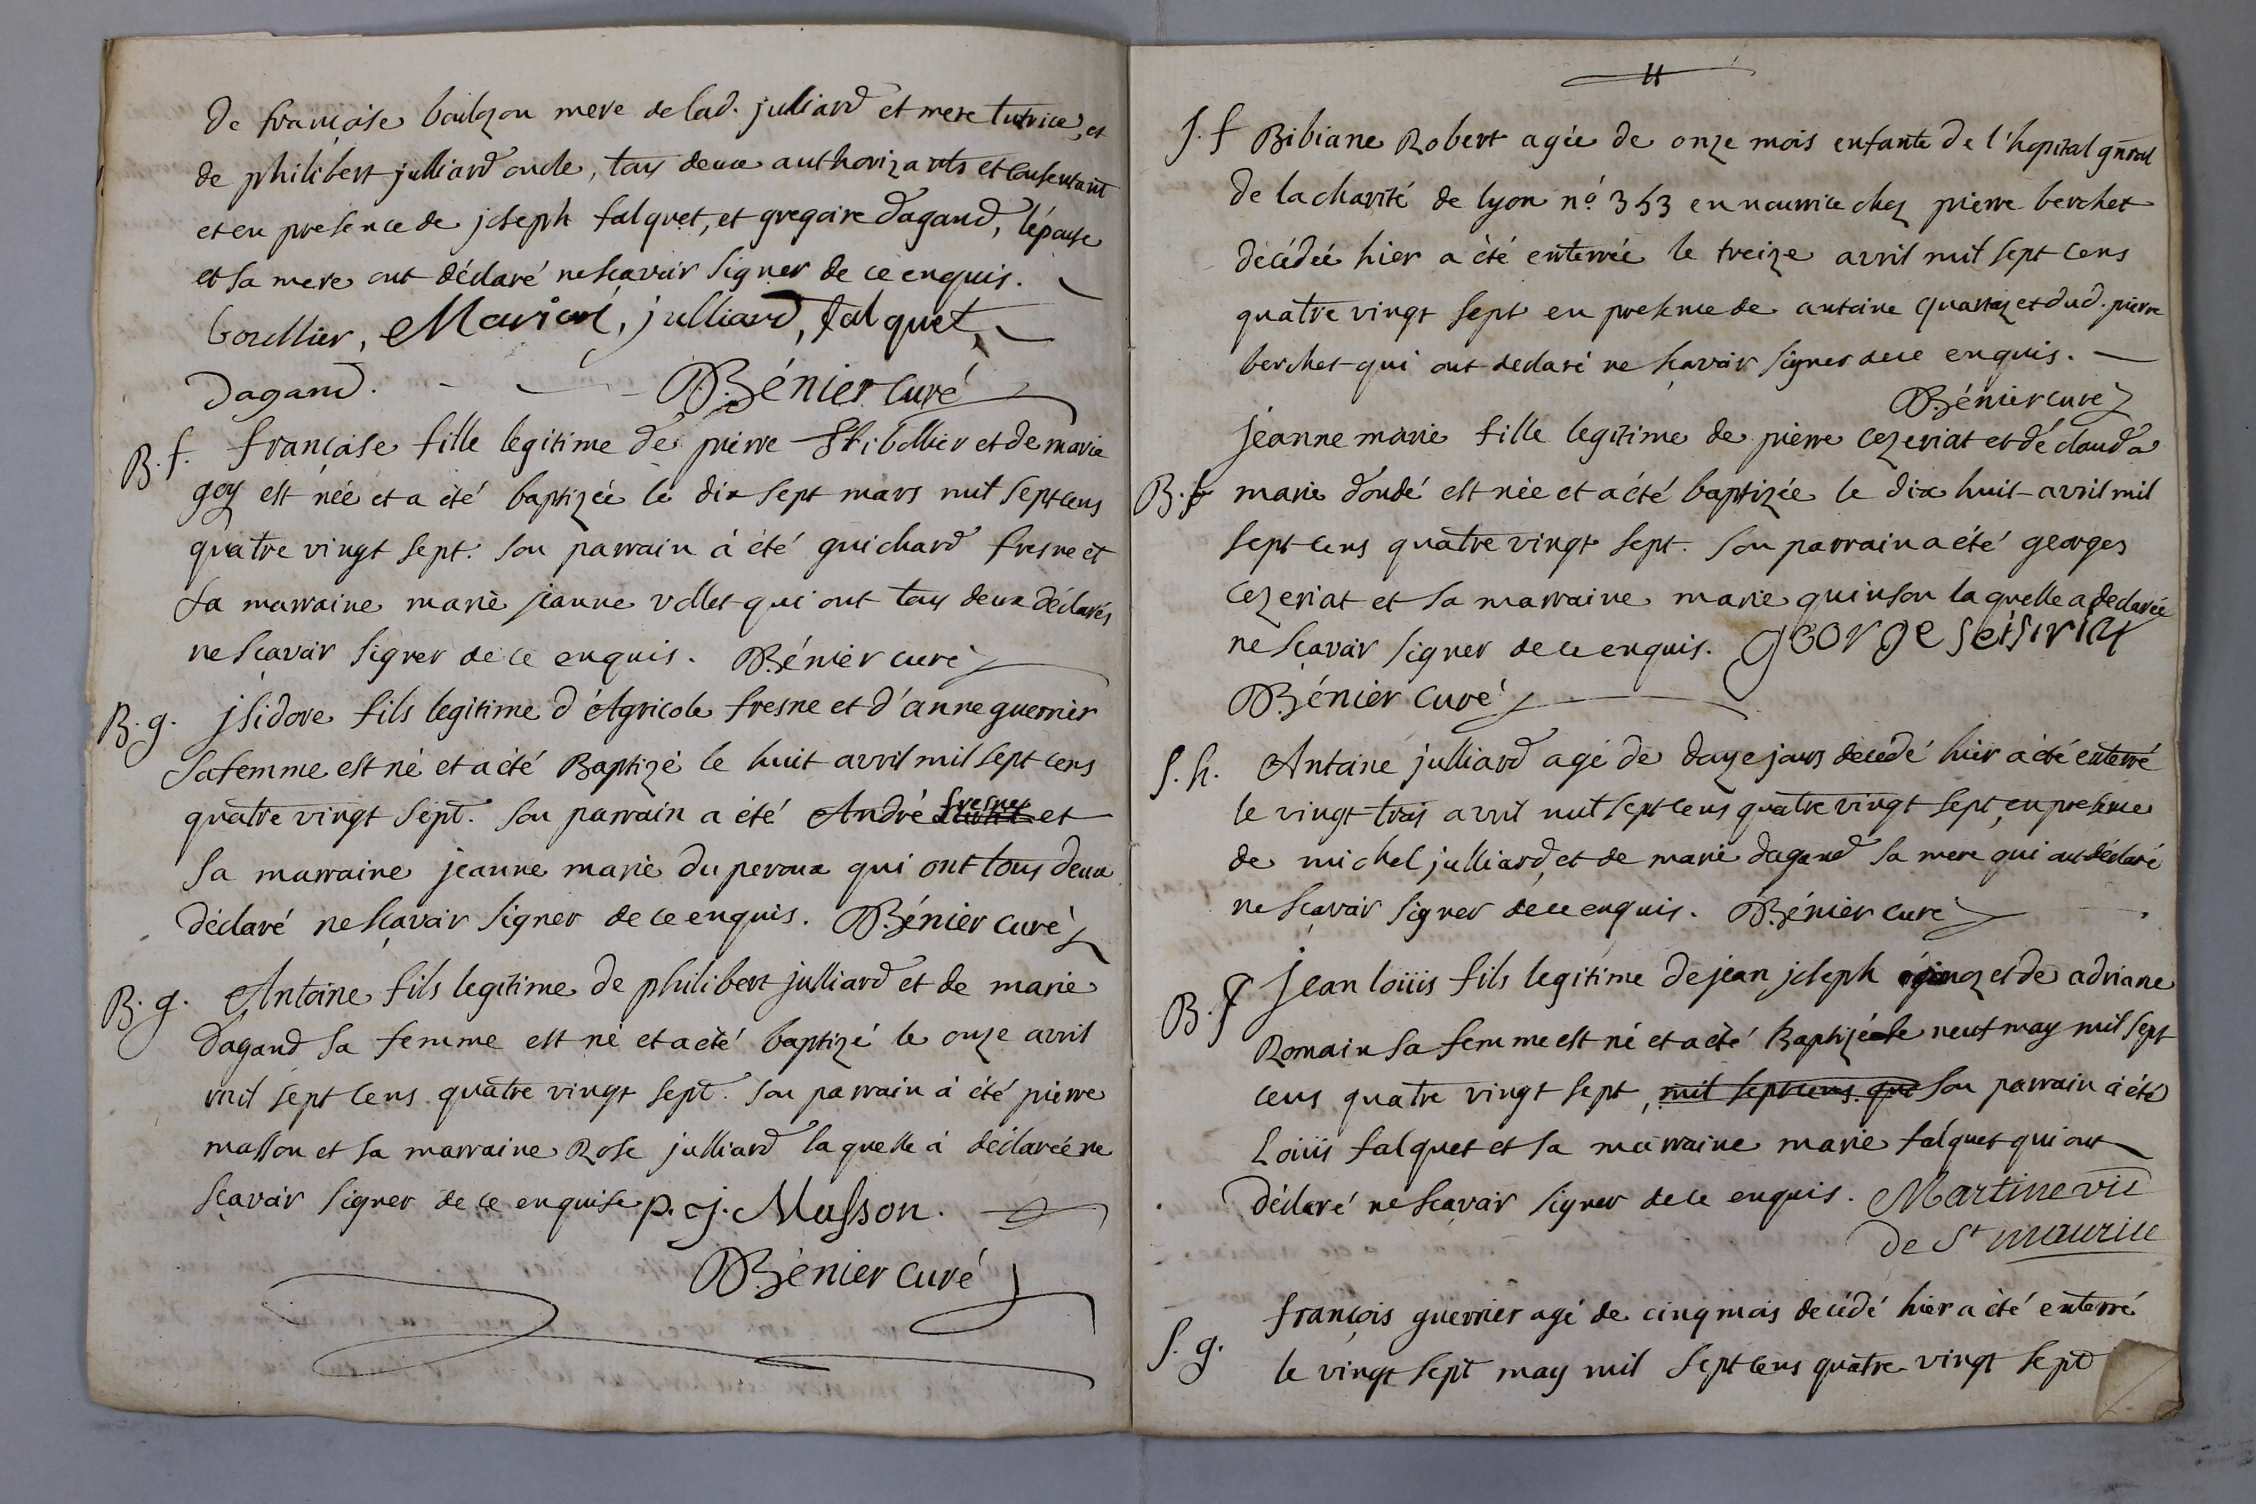 de francoise bouluzon mere de lad. julliard et mere tutrice, et
de philibert julliard oncle, tous deux authorizants et consentant
et en presence de joseph falquet, et gregoire dagand, l'épouse
et sa mere ont déclaré ne scavoir signer de ce enquis.
Marion, julliard, falquet,
dagand. Bénier curé
B. f. francoise fille legitime de pierre et de marie
goy est née et a été baptizée le dix sept mars mil sept cens
quatre vingt sept. son parrain à été guichard fresne et
sa marraine marie jeanne vollet qui ont tous deux déclarés
ne scavoir signer de ce enquis. Bénier curé
B. g. jsidore fils legitime d'Agricole fresne et d'anne guerrier
sa femme est né et a été Baptizé le huit avril mil sept cens
quatre vingt sept. son parrain a été André fresne et
sa marraine jeanne marie du peroux qui ont tous deux
déclaré ne sçavoir signer de ce enquis. Bénier curé
B. g. Antoine fils legitime de philibert julliard et de marie
dagand sa femme est né et a été baptizé le onze avril
mil sept cens quatre vingt sept. son parrain à été pierre
masson et sa marraine Rose julliard laquelle à déclarée ne
sçavoir signer de ce enquise p. j. Masson.
Bénier curé
11
S. f Bibiane Robert agée de onze mois enfante de l'hopital gnral
de la charité de lyon n.º 353 en nourrice chez pierre berchet
décédée hier a été enterrée le treize avril mil sept cens
quatre vingt sept en presence de antoine quartaz et dud. pierre
berchet qui ont declaré ne scavoir signer de ce enquis.
Bénier curé
jeanne marie fille legitime de pierre cezeriat et de clauda
B. f marie dondé est née et a été baptizée le dix huit avril mil
sept cens quatre vingt sept. son parrain a été georges
cezeriat et sa marraine marie quinson laquelle a declarée
ne sçavoir signer de ce enquis. george seisiriat
Bénier curé
S. h. Antoine julliard agé de douze jours decedé hier a été enterré
le vingt trois avril mil sept cens quatre vingt sept, en presence
de michel julliard, et de marie dagand sa mere qui ont déclaré
ne scavoir signer de ce enquis. Bénier curé
B. g jean loüis fils legitime de jean joseph et de adriane
Romain sa femme est né et a été Baptizé le neuf may mil sept
cens quatre vingt sept, mil sept cens qua son parrain à été
Loüis falquet et sa marraine marie falquet qui ont
déclaré ne scavoir signer de ce enquis. Martine vic
de St maurice
françois guerrier agé de cinq mois decédé hier a été enterré
S. g. le vingt sept may mil sept cens quatre vingt sept